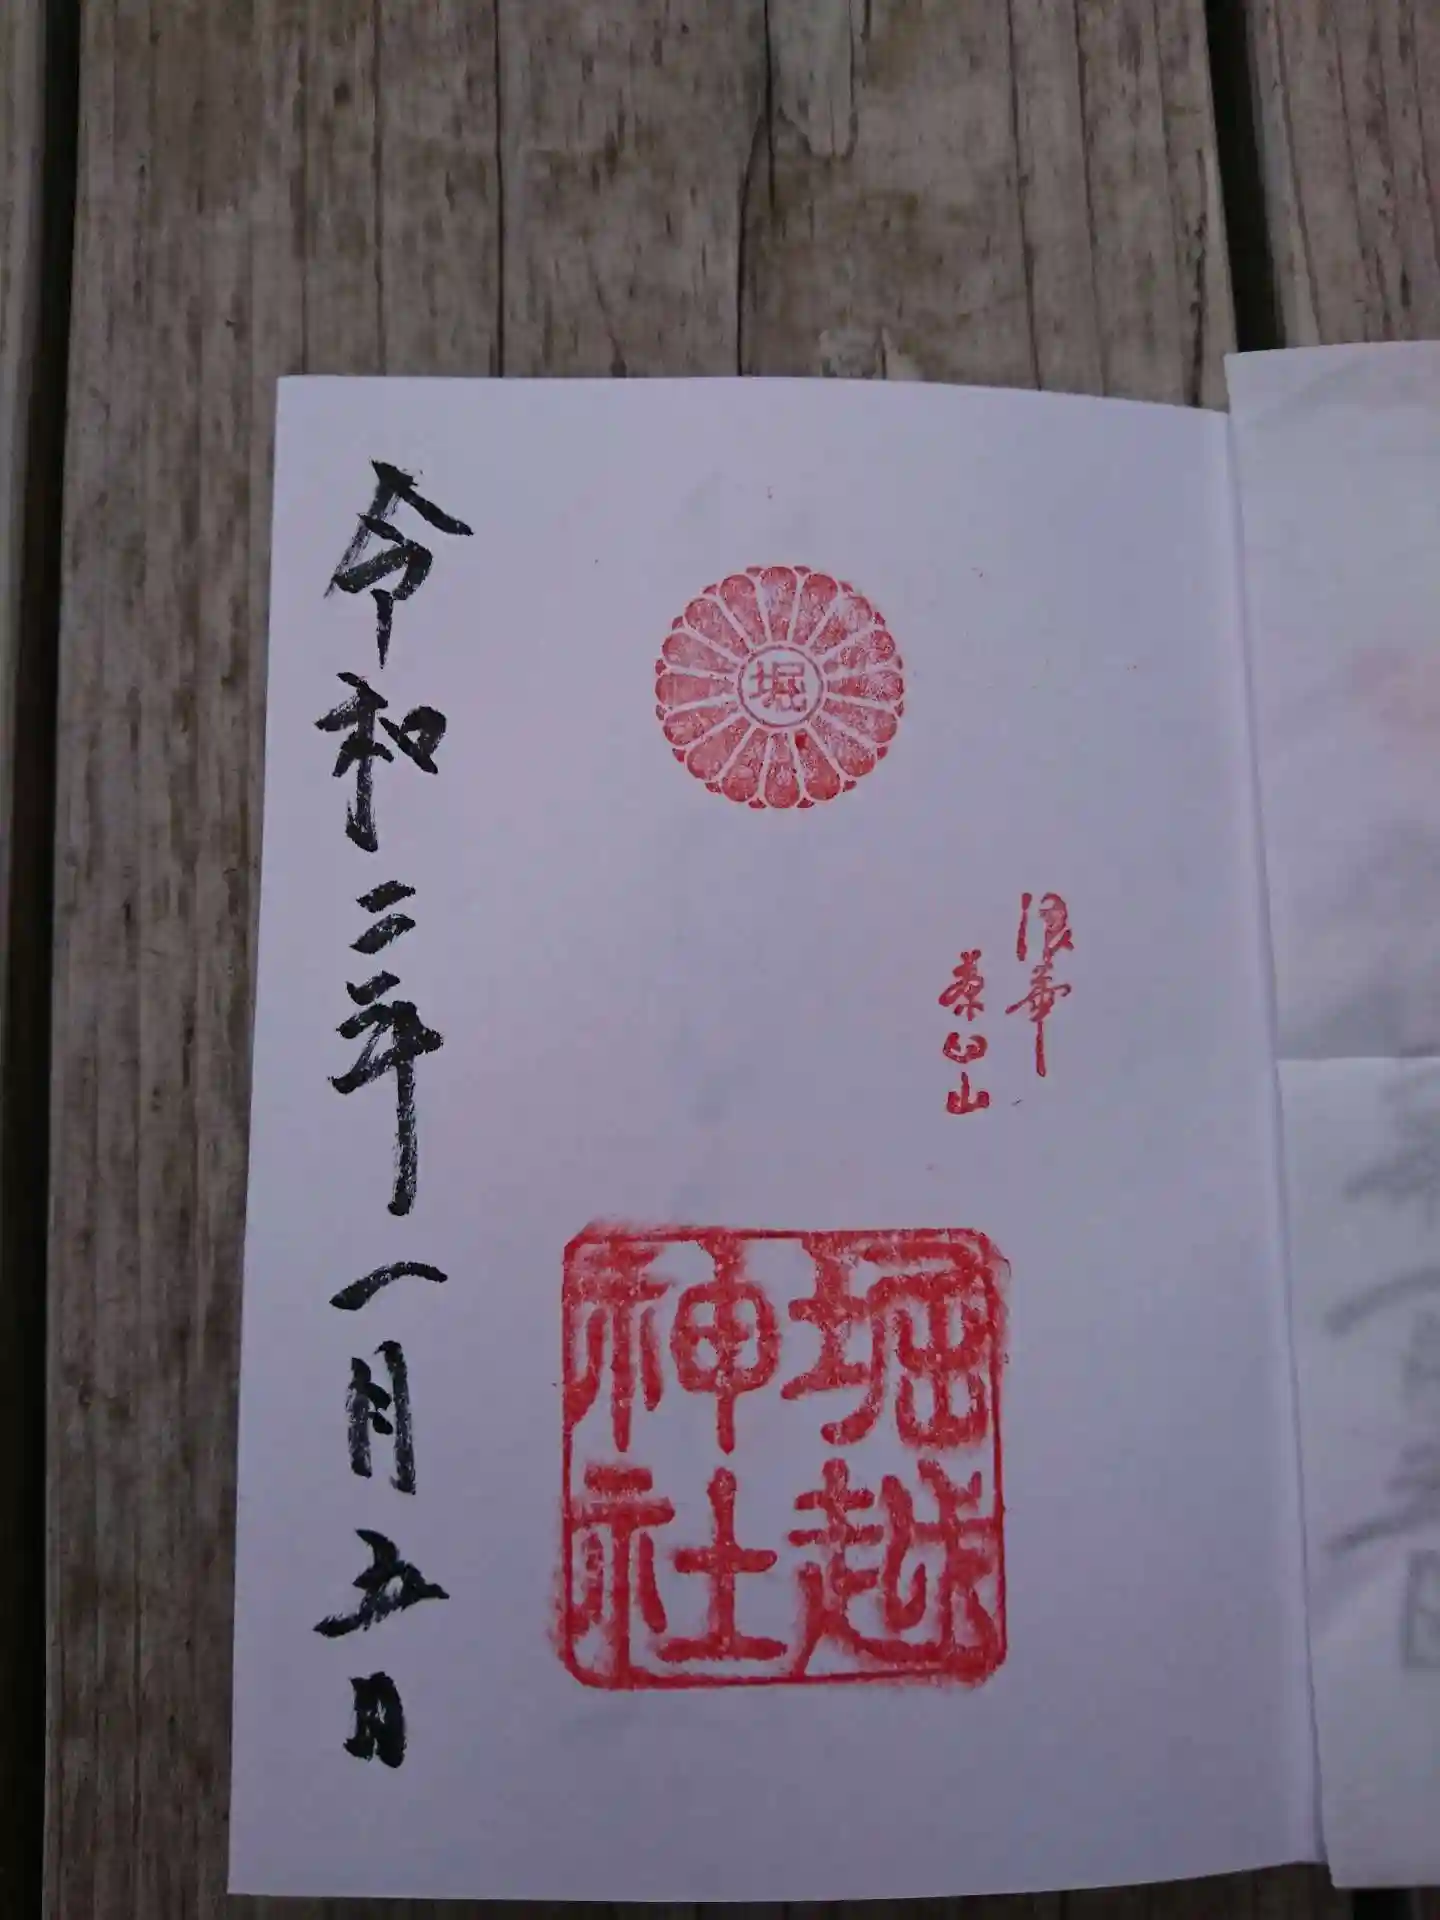 浪華
茶臼山
堀
堀越
神社
令和二年一月五日